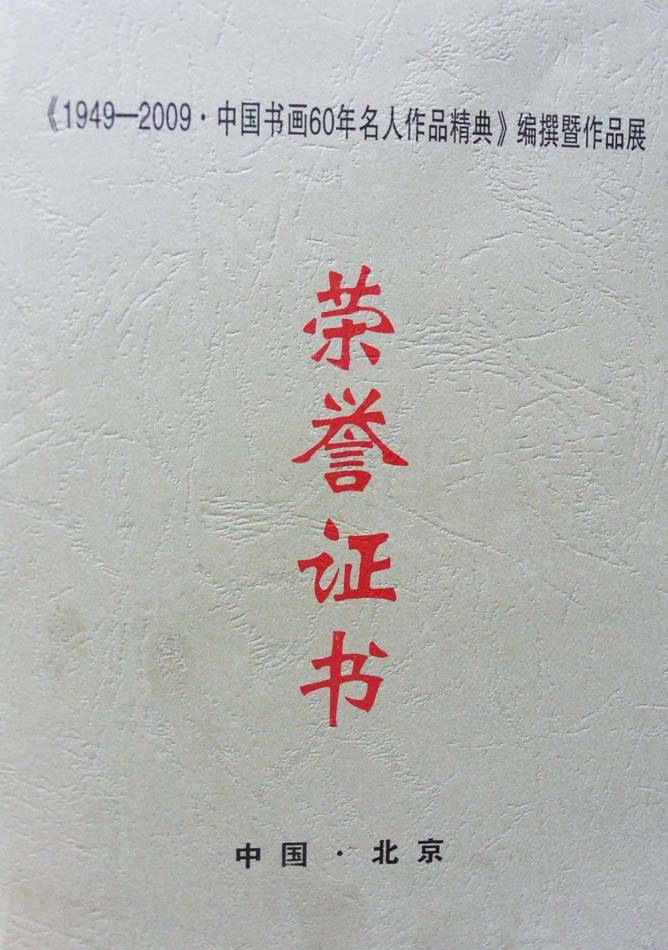 《1949—2009·中国书画60年名人作品精典》编撰暨作品展
荣誉证书
中国·北京